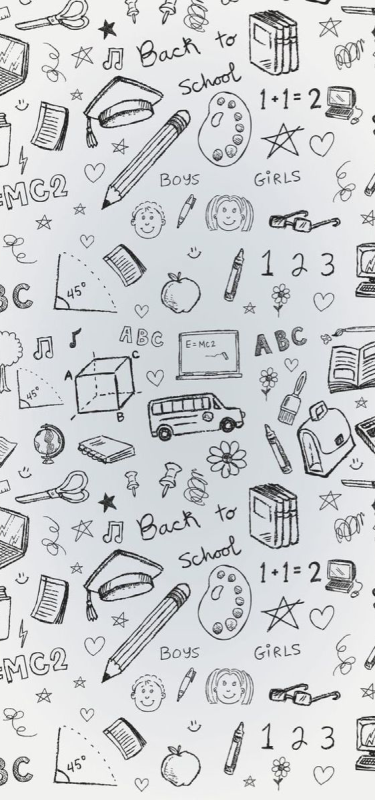 Back to
School
1+1=2
=MC2
BOYS
GIRLS
45°
1 2 3
BC
ABC
E=MC2
ABC
45°
A
C
B
Back to
School
1+1=2
=MC2
BOYS
GIRLS
45°
1 2 3
BC